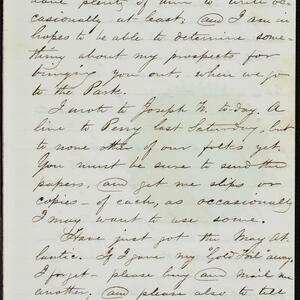 have plenty of time to write oc-
casionally at least, and I am in
hopes to be able to determine some-
thing about my prospects for
bringing you out, when we go
to the Park.
I wrote to Joseph N. to-day. A
line to Perry last Saturday, but
to none other of our folks yet.
You must be sure to send the
papers, and get me slips or
copies - of each, as occasionally
I may want to use some.
Have just got the May At-
lantic. If I gave my Gold Foil away,
I forget - please buy and mail me
another, and please also to tell